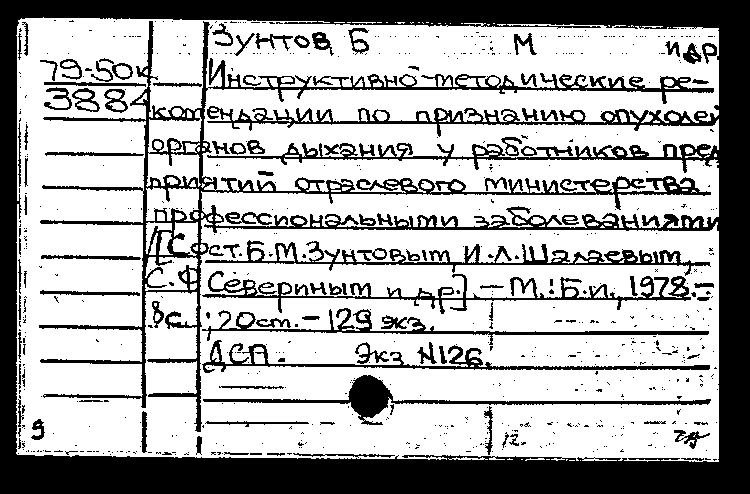 Зунтов Б М и др
79-50к Инструктивно-методические ре-
3884 комендации по признанию опухолей
органов дыхания у работников пред
приятий отраслевого министерства
профессиональными заболеваниями
/[Сост. Б.М.Зунтовым, И.Л.Шалаевым,
С.Ф Севериным и др.]. — М.: Б.и., 1978.-
8с. ; 20см. - 129 экз.
ДСП. Экз N126.
9 12